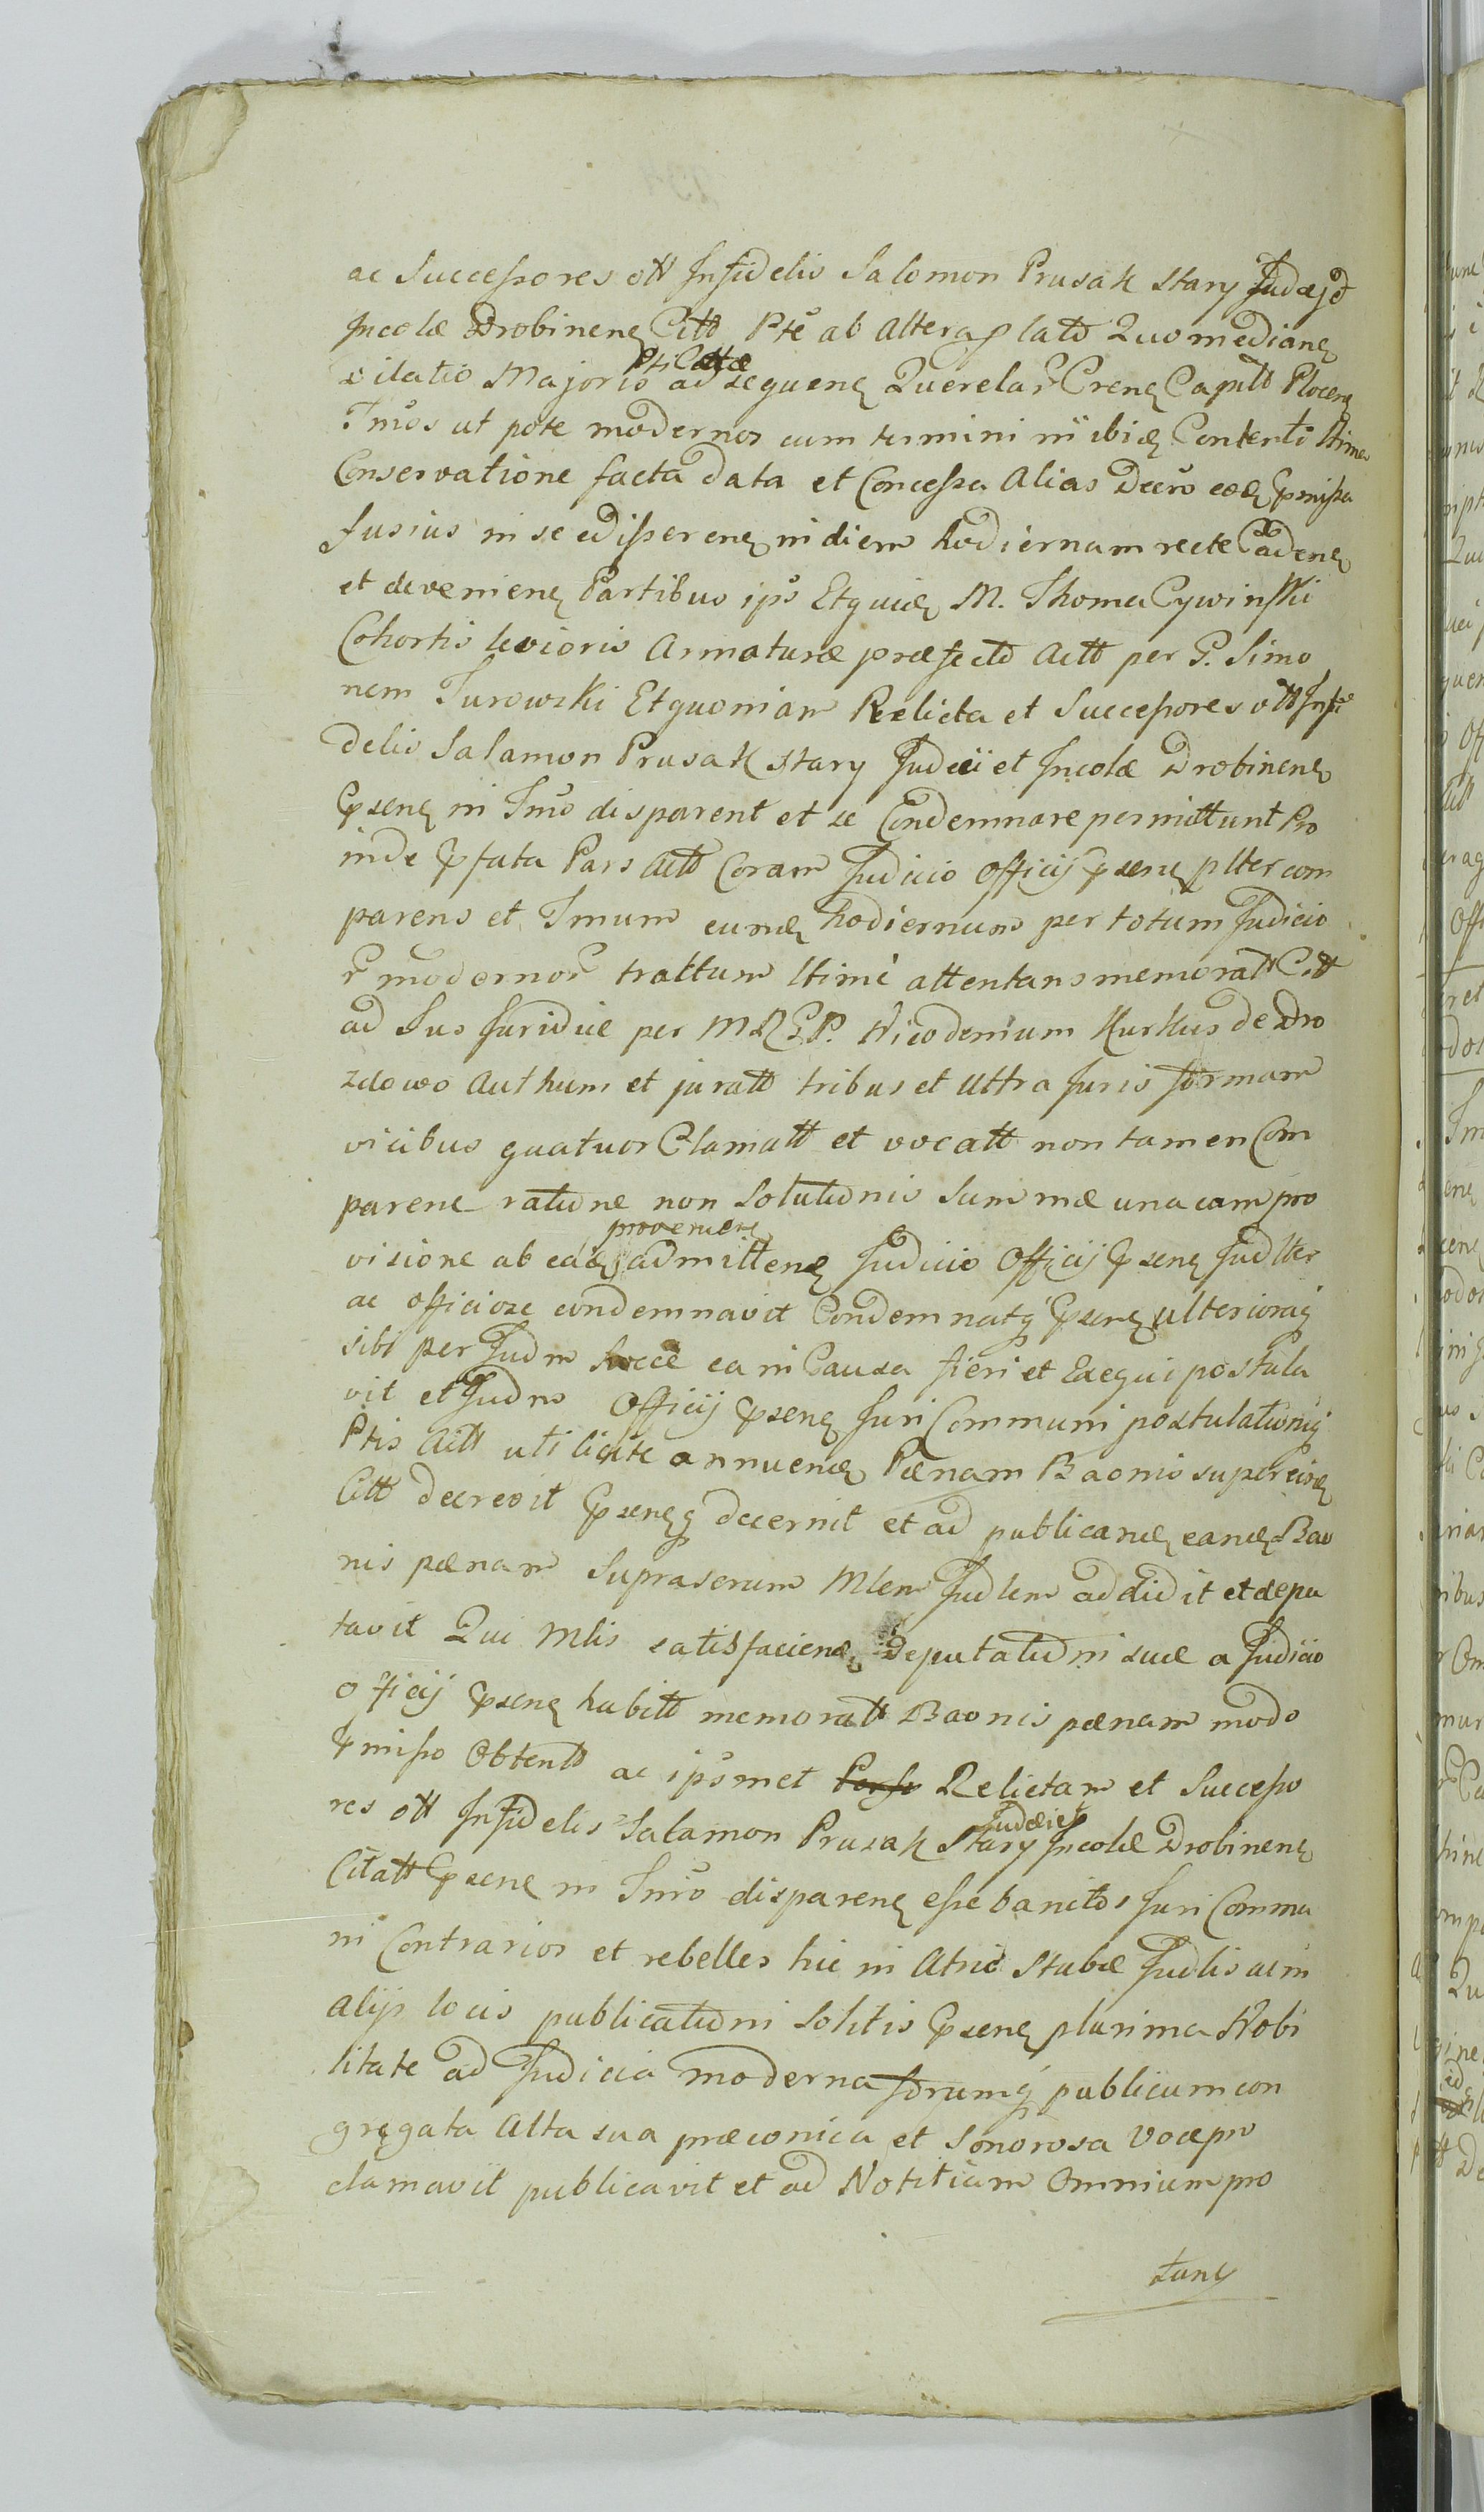 ac Successores ott Infidelis Salomon Prusak Stary Judæj
Incolæ Drobinenɇ Citt Pte ab altera Quo medianɇ
dilatio Majoris Pti Cattæ ad sequenɇ Querelar Crenɇ Capitt Plocenɇ
Tmos ut pote modernos cum termini in ibiɇ Contenti
Conservatione facta data et Concessa Alias Decro eoɇ pmissa
fusius in se edisserenɇ in diem hodiernam recte Cadenɇ
et devenienɇ Partibus ips Etquiɇ M. Thoma Cywinski
Cohortis levioris Armaturæ præfecto Actt per G. Simo
nem Turowski Etquoniam Relicta et Successores ott Infi
delis Salamon Prusak Stary Judæi et Incolæ Drobinenɇ
psenɇ in Tmo disparent et se Condemnare permittunt Pro
inde pfata Pars Actt Coram Judicio Officij psenɇ plter com
parens et Tmum eumɇ hodiernum per totum Judicio
r modernor tractum ltime attentans memoratt Citt
ad Jus Juridice per M Nicodemum Kurkus de Dro
zdowo Authum et juratt tribus et ultra Juris formam
vicibus quatuor Clamatt et vocatt non tamen Com
parenɇ ratione non Solutionis Summæ una cum pro
visione ab eaɇ provenienɇ admittenɇ Judicio Officij psenɇ Judlter
ac officiose condemnavit Condemnatq psenɇ ulterioraq
sibi per Judm hocce ea in Causa fieri et Exequi postula
vit et Judm Officij psenɇ Juri Communi postulationiq
Ptis Actt uti licite annuenɇ Pænam Baonis super eisɇ
Citt decrevit psenɇq decernit et ad publicanɇ eanɇ Bao
nis pænam Suprascrum Mlem Judlem addidit et depu
tavit Qui Mlis satisfacienɇ Deputationi suæ a Judicio
officij psenɇ habitt memoratt Baonis pænam modo
pmisso Obtentt ac ipsmet Relictam et Successo
res ott Infidelis Salamon Prusak Stary Judæi et Incolæ Drobinenɇ
Citatt psenɇ in Tmo disparenɇ esse banitos Juri Commu
ni Contrarios et rebelles hic in Atrio Stubæ Judlis ac in
alijs locis publicationi Solitis psenɇ plurima Nobi
litate ad Judicia moderna forumq publicum con
gregata Alta sua præconica et Sonorosa Voce pro
clamavit publicavit et ad Notitiam Omnium pro